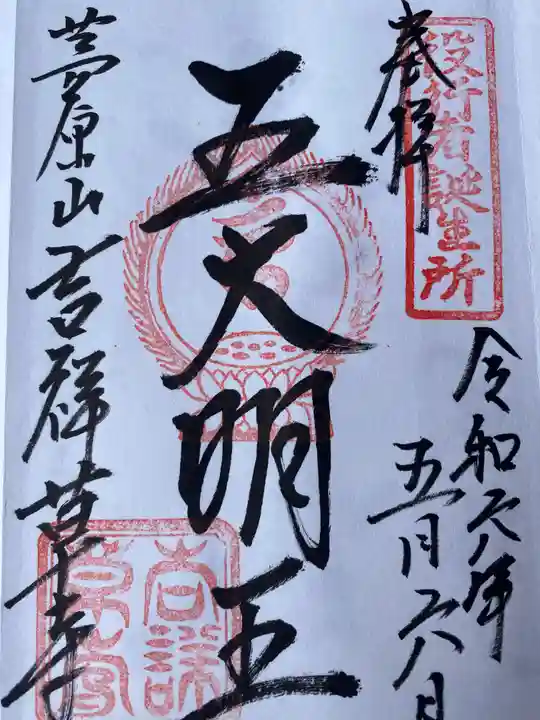 役行者誕生所
奉拝
令和六年
五月六日
五大明王
茅原山吉祥草寺
吉祥
草寺